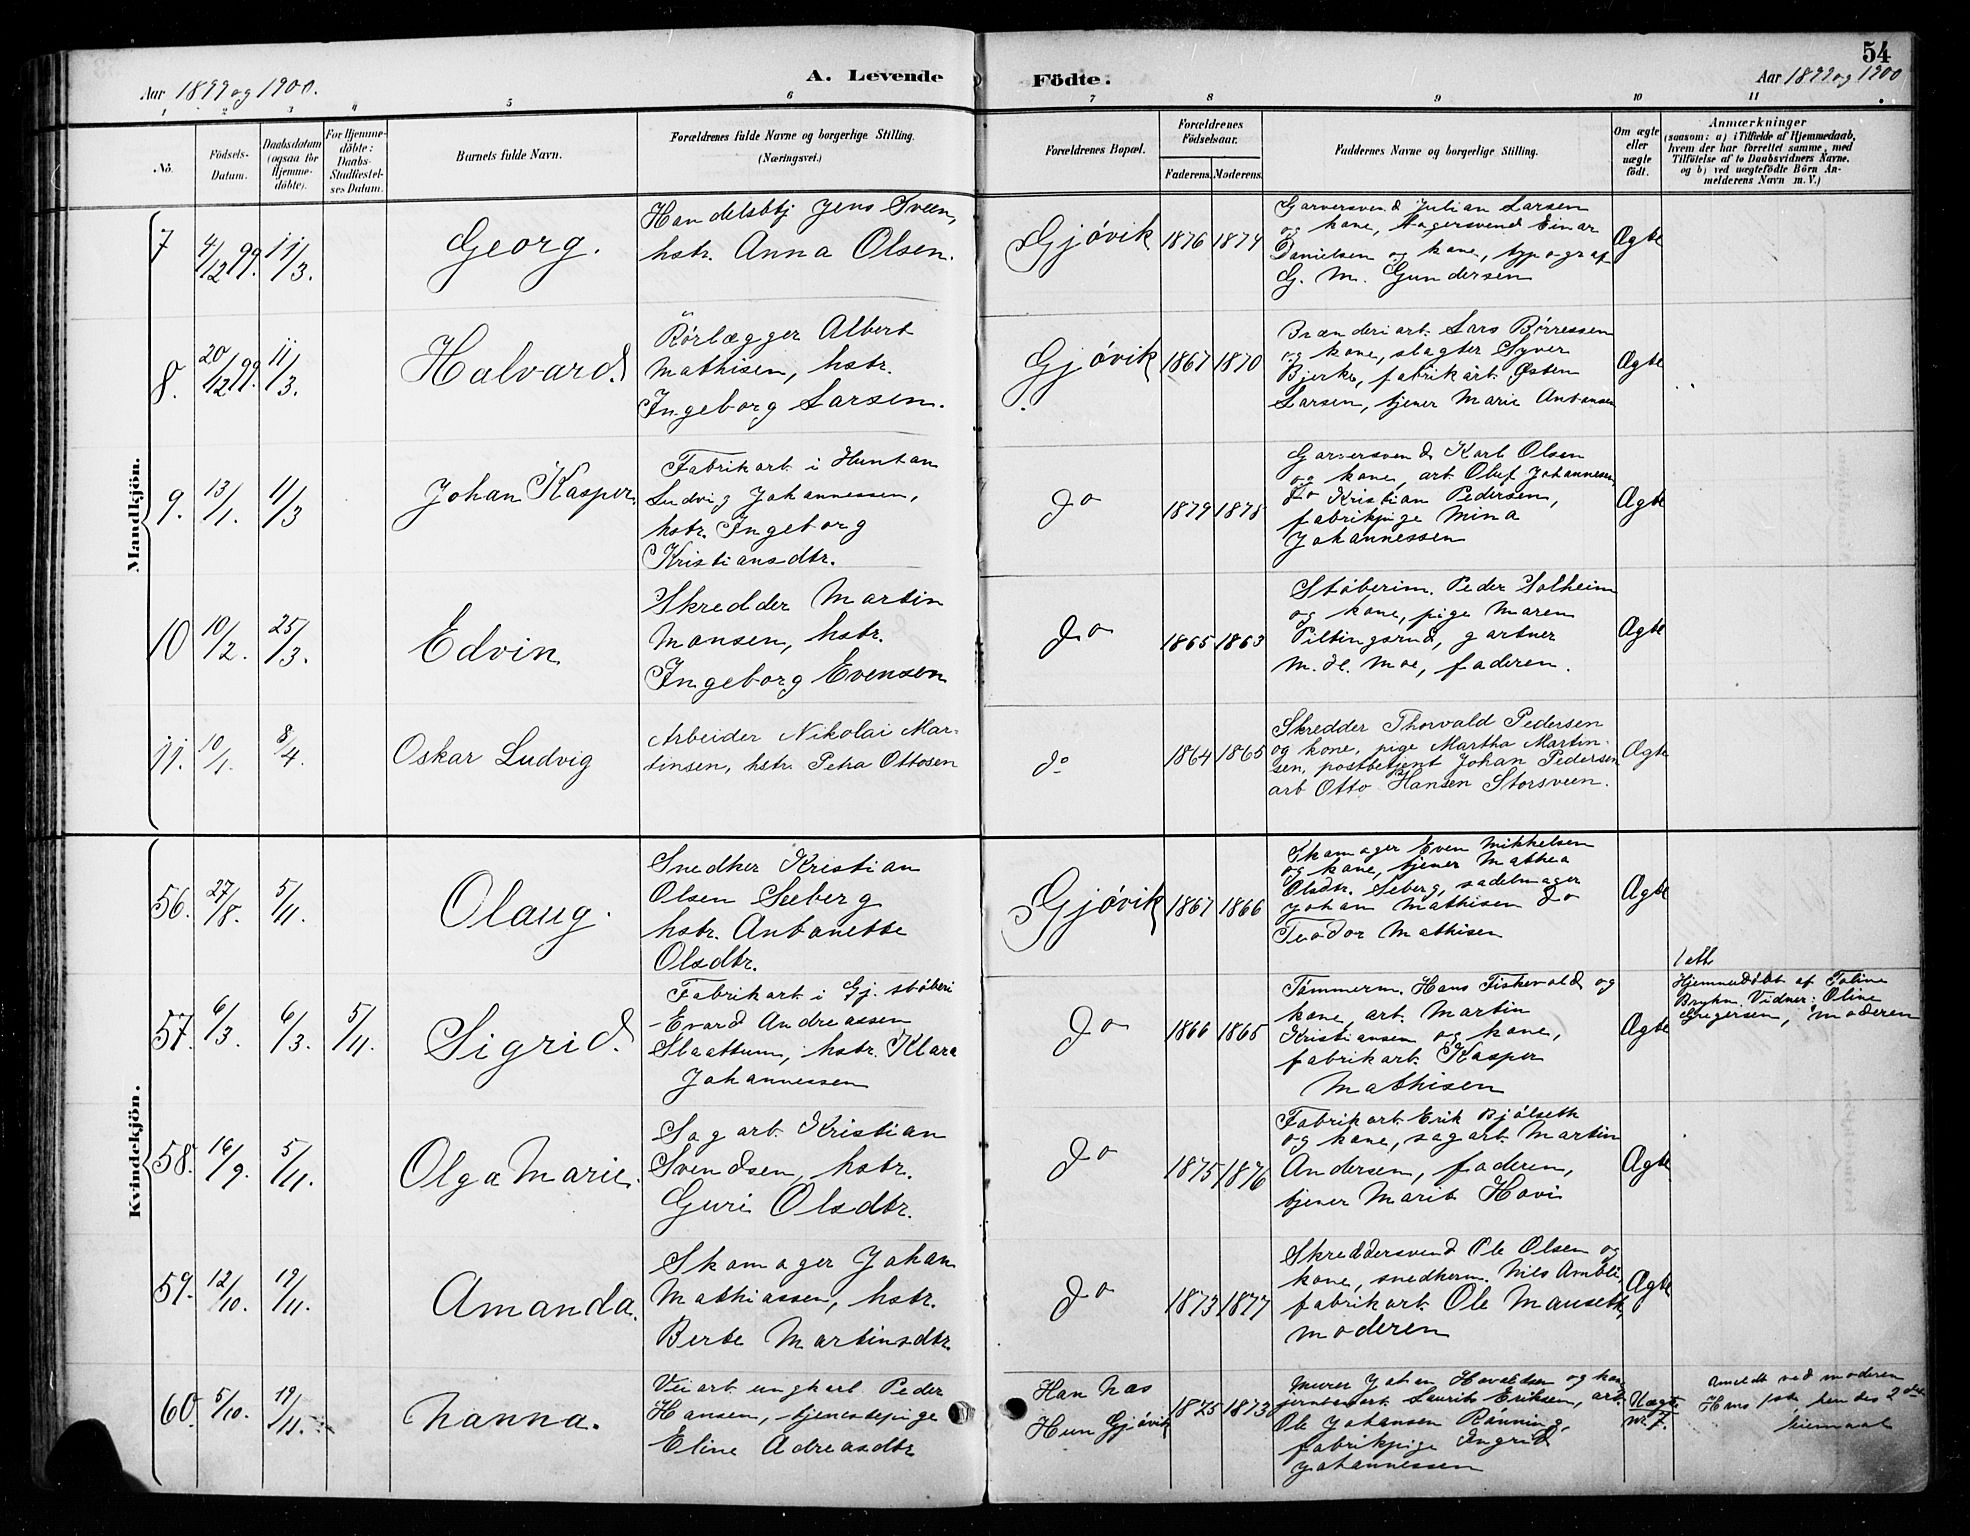 54
Aar 1899 og 1900.
A. Levende Födte.
Aar 1899 og 1900
1 2 3 4 5 6 7 8 9 10 11
No.
Födsels-Datum.
Daabsdatum (ogsaa for Hjemmedöbte).
For Hjemmedöbte: Daabs-Stadfæstelses Datum.
Barnets fulde Navn.
Forældrenes fulde Navne og borgerlige Stilling.
(Næringsvei.)
Forældrenes Bopæl.
Forældrenes Födselsaar.
Faderens. Moderens.
Faddernes Navne og borgerlige Stilling.
Om ægte eller uægte födt.
Anmærkninger
(saasom: a) i Tilfælde af Hjemmedaab,
hvem der har forrettet samme, med
Tilföielse af to Daabsvidners Navne,
og b) ved uægtefödte Börn Anmelderens Navn m. V.)
Mandkjön.
7 4/12 99. 11/3. Georg.
Handelsbtj Jens Sveen,
hstr. Anna Olsen.
Gjøvik 1876 1874
Garversvend Julian Larsen
og kone, bagersvend Einar
Danielsen og kone, typograf
G. M. Gundersen
Ægte
8. 20/12 99. 11/3. Halvard.
Rørlægger Albert
Mathisen, hstr.
Ingeborg Larsen.
Gjøvik 1867 1870
Brænderiarb. Lars Børressen
og kone, slagter Syver
Bjerke, fabrikarb. Østen
Larsen, tjener Marie Antonsen
Ægte
9. 13/1. 11/3 Johan Kasper.
Fabrikarb. i Hunton
Ludvig Johannessen,
hstr. Ingeborg
Kristiansdtr.
do 1879 1878
Garversvend Karl Olsen
og kone, arb. Oluf Johannesen
do Kristian Pedersen,
fabrikpige Mina
Johannessen
Ægte
10 10/2. 25/3. Edvin
Skredder Martin
Monsen, hstr.
Ingeborg Evensen
do 1865 1863
Støberim. Peder Solheim
og kone, pige Maren
Piltingsrud, gartner
M. H. Moe, faderen.
Ægte
11. 10/1. 8/4. Oskar Ludvig
Arbeider Nikolai Mar-
tinsen, hstr. Petra Ottosen
do 1864 1865
Skredder Thorvald Pedersen
og kone, pige Martha Martin-
sen, postbetjent Johan Pedersen
arb Otto Hansen Storsveen.
Ægte
Kvindekjön.
56. 27/8. 5/11. Olaug.
Snedker Kristian
Olsen Seeberg
hstr. Antonette
Olsdtr.
Gjøvik 1867 1866
Skomager Even Mikkelsen
og kone, tjener Mathea
Olsdtr. Seberg, sadelmager
Johan Mathisen do
Teodor Mathisen
Ægte
57. 6/3. 6/3. 5/11. Sigrid.
Fabrikarb. i Gj. støberi
Evard Andreassen
Slaattum, hstr. Klara
Johannessen
do 1866 1865
Tømmerm. Hans Fiskevold og
kone, arb. Martin
Kristiansen og kone,
fabrikarb. Kasper
Mathisen
Ægte
1 att.
Hjemmedøbt af Toline
Bryhn. Vidner: Oline
Gregersen, moderen
58. 16/9. 5/11. Olga Marie.
Sagarb. Kristian
Svendsen, hstr.
Guri Olsdtr.
do 1875 1876
Fabrikarb. Erik Bjølseth
og kone, sagarb. Martin
Andersen, faderen,
tjener Marit Hovi
Ægte
59. 12/10. 19/11. Amanda.
Skomager Johan
Mathiassen, hstr.
Berte Martinsdtr.
do 1873 1877
Skreddersvend Ole Olsen og
kone, snedkerm. Nils Ambli,
fabrikarb. Ole Mauseth,
moderen
Ægte
60. 5/10. 19/11. Nanna.
Veiarb. ungkarl Peder
Hansen, tjenestepige
Eline Adreasdtr
Han Næs
Hun Gjøvik 1875 1873
Murer Johan Hovaldsen og kone,
jernbanarb. Laurits Eriksen, arb.
Ole Johansen Rønning,
fabrikpige Ingrid
Johannessen
Uægte
nr. 7.
Anmeldt ved moderen
Hans 1ste, hendes 2det
leiermaal